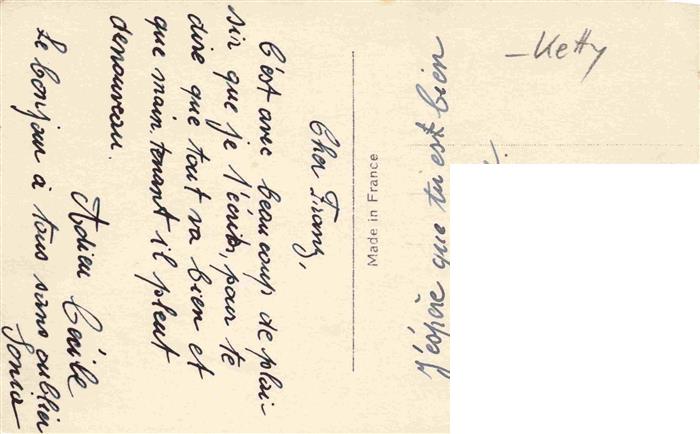 Cher Franz,
C'est avec beaucoup de plai-
sir que je t'écris, pour te
dire que tout va bien et
que main.tenant il pleut
denouveau.
Adieu Cécile
Le bonjour à tous sans oublier
Sonia
Made in France
J'éspère que tu est bien
- Ketty